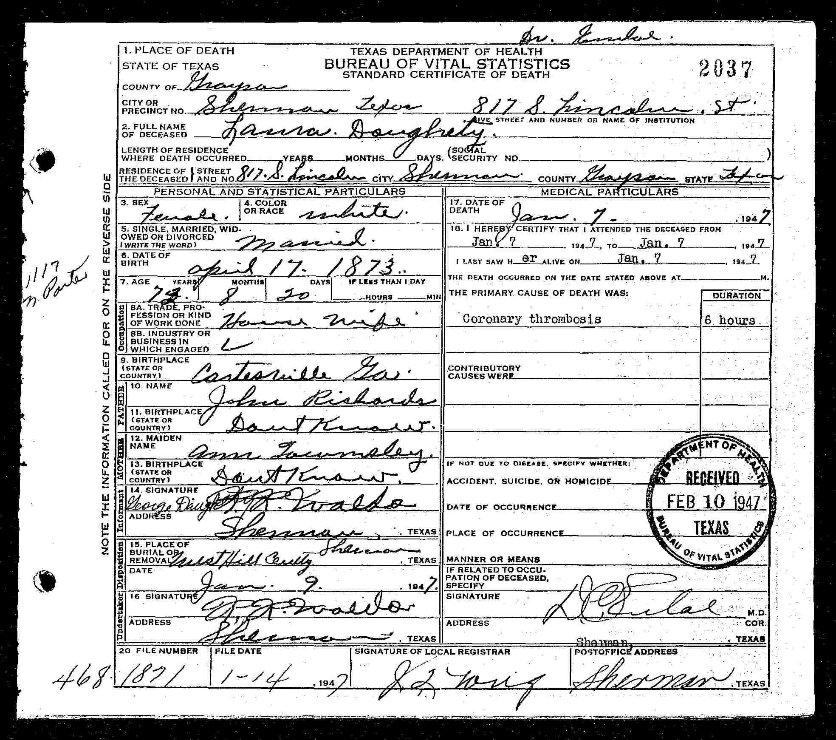 Dr.
1. PLACE OF DEATH
STATE OF TEXAS
COUNTY OF Grayson
TEXAS DEPARTMENT OF HEALTH
BUREAU OF VITAL STATISTICS
STANDARD CERTIFICATE OF DEATH
2037
CITY OR PRECINCT NO. Sherman Texas 817 S. Lincoln St.
GIVE STREET AND NUMBER OR NAME OF INSTITUTION
2. FULL NAME OF DECEASED Laura Doughrety.
LENGTH OF RESIDENCE WHERE DEATH OCCURRED YEARS MONTHS DAYS. (SOCIAL SECURITY NO. )
RESIDENCE OF THE DECEASED STREET AND NO. 817 S. Lincoln CITY Sherman COUNTY Grayson STATE Texas
PERSONAL AND STATISTICAL PARTICULARS
3. SEX Female. 4. COLOR OR RACE white.
5. SINGLE, MARRIED, WIDOWED OR DIVORCED (WRITE THE WORD) Married.
6. DATE OF BIRTH April 17. 1873.
7. AGE YEARS MONTHS DAYS IF LESS THAN 1 DAY
73 8 20 HOURS MIN
Occupation
8A. TRADE, PROFESSION OR KIND OF WORK DONE House Wife
8B. INDUSTRY OR BUSINESS IN WHICH ENGAGED
9. BIRTHPLACE (STATE OR COUNTRY) Cartesville Ga.
FATHER
10. NAME John Richards
11. BIRTHPLACE (STATE OR COUNTRY) Dont Know.
MOTHER
12. MAIDEN NAME Ann Townsley.
13. BIRTHPLACE (STATE OR COUNTRY) Dont Know.
Informant
14. SIGNATURE George Waldo
ADDRESS Sherman, TEXAS
Undertaker Disposition
15. PLACE OF BURIAL OR REMOVAL West Hill Cemty Sherman, TEXAS
DATE Jan. 9. 1947.
16 SIGNATURE Waldo
ADDRESS Sherman, TEXAS
MEDICAL PARTICULARS
17. DATE OF DEATH Jan. 7- , 1947
18. I HEREBY CERTIFY THAT I ATTENDED THE DECEASED FROM
Jan. 7 1947, TO Jan. 7 , 1947
I LAST SAW H er ALIVE ON Jan. 7 , 1947
THE DEATH OCCURRED ON THE DATE STATED ABOVE AT M.
THE PRIMARY CAUSE OF DEATH WAS: DURATION
Coronary thrombosis 6 hours
CONTRIBUTORY CAUSES WERE
IF NOT DUE TO DISEASE, SPECIFY WHETHER:
ACCIDENT, SUICIDE, OR HOMICIDE
DATE OF OCCURRENCE
PLACE OF OCCURRENCE
MANNER OR MEANS
IF RELATED TO OCCUPATION OF DECEASED, SPECIFY
SIGNATURE M.D. COR.
ADDRESS Sherman, TEXAS
DEPARTMENT OF HEALTH
RECEIVED
FEB 10 1947
TEXAS
BUREAU OF VITAL STATISTICS
20 FILE NUMBER FILE DATE SIGNATURE OF LOCAL REGISTRAR POSTOFFICE ADDRESS
468 1871 1-14 , 1947 Sherman, TEXAS
NOTE THE INFORMATION CALLED FOR ON THE REVERSE SIDE
1117